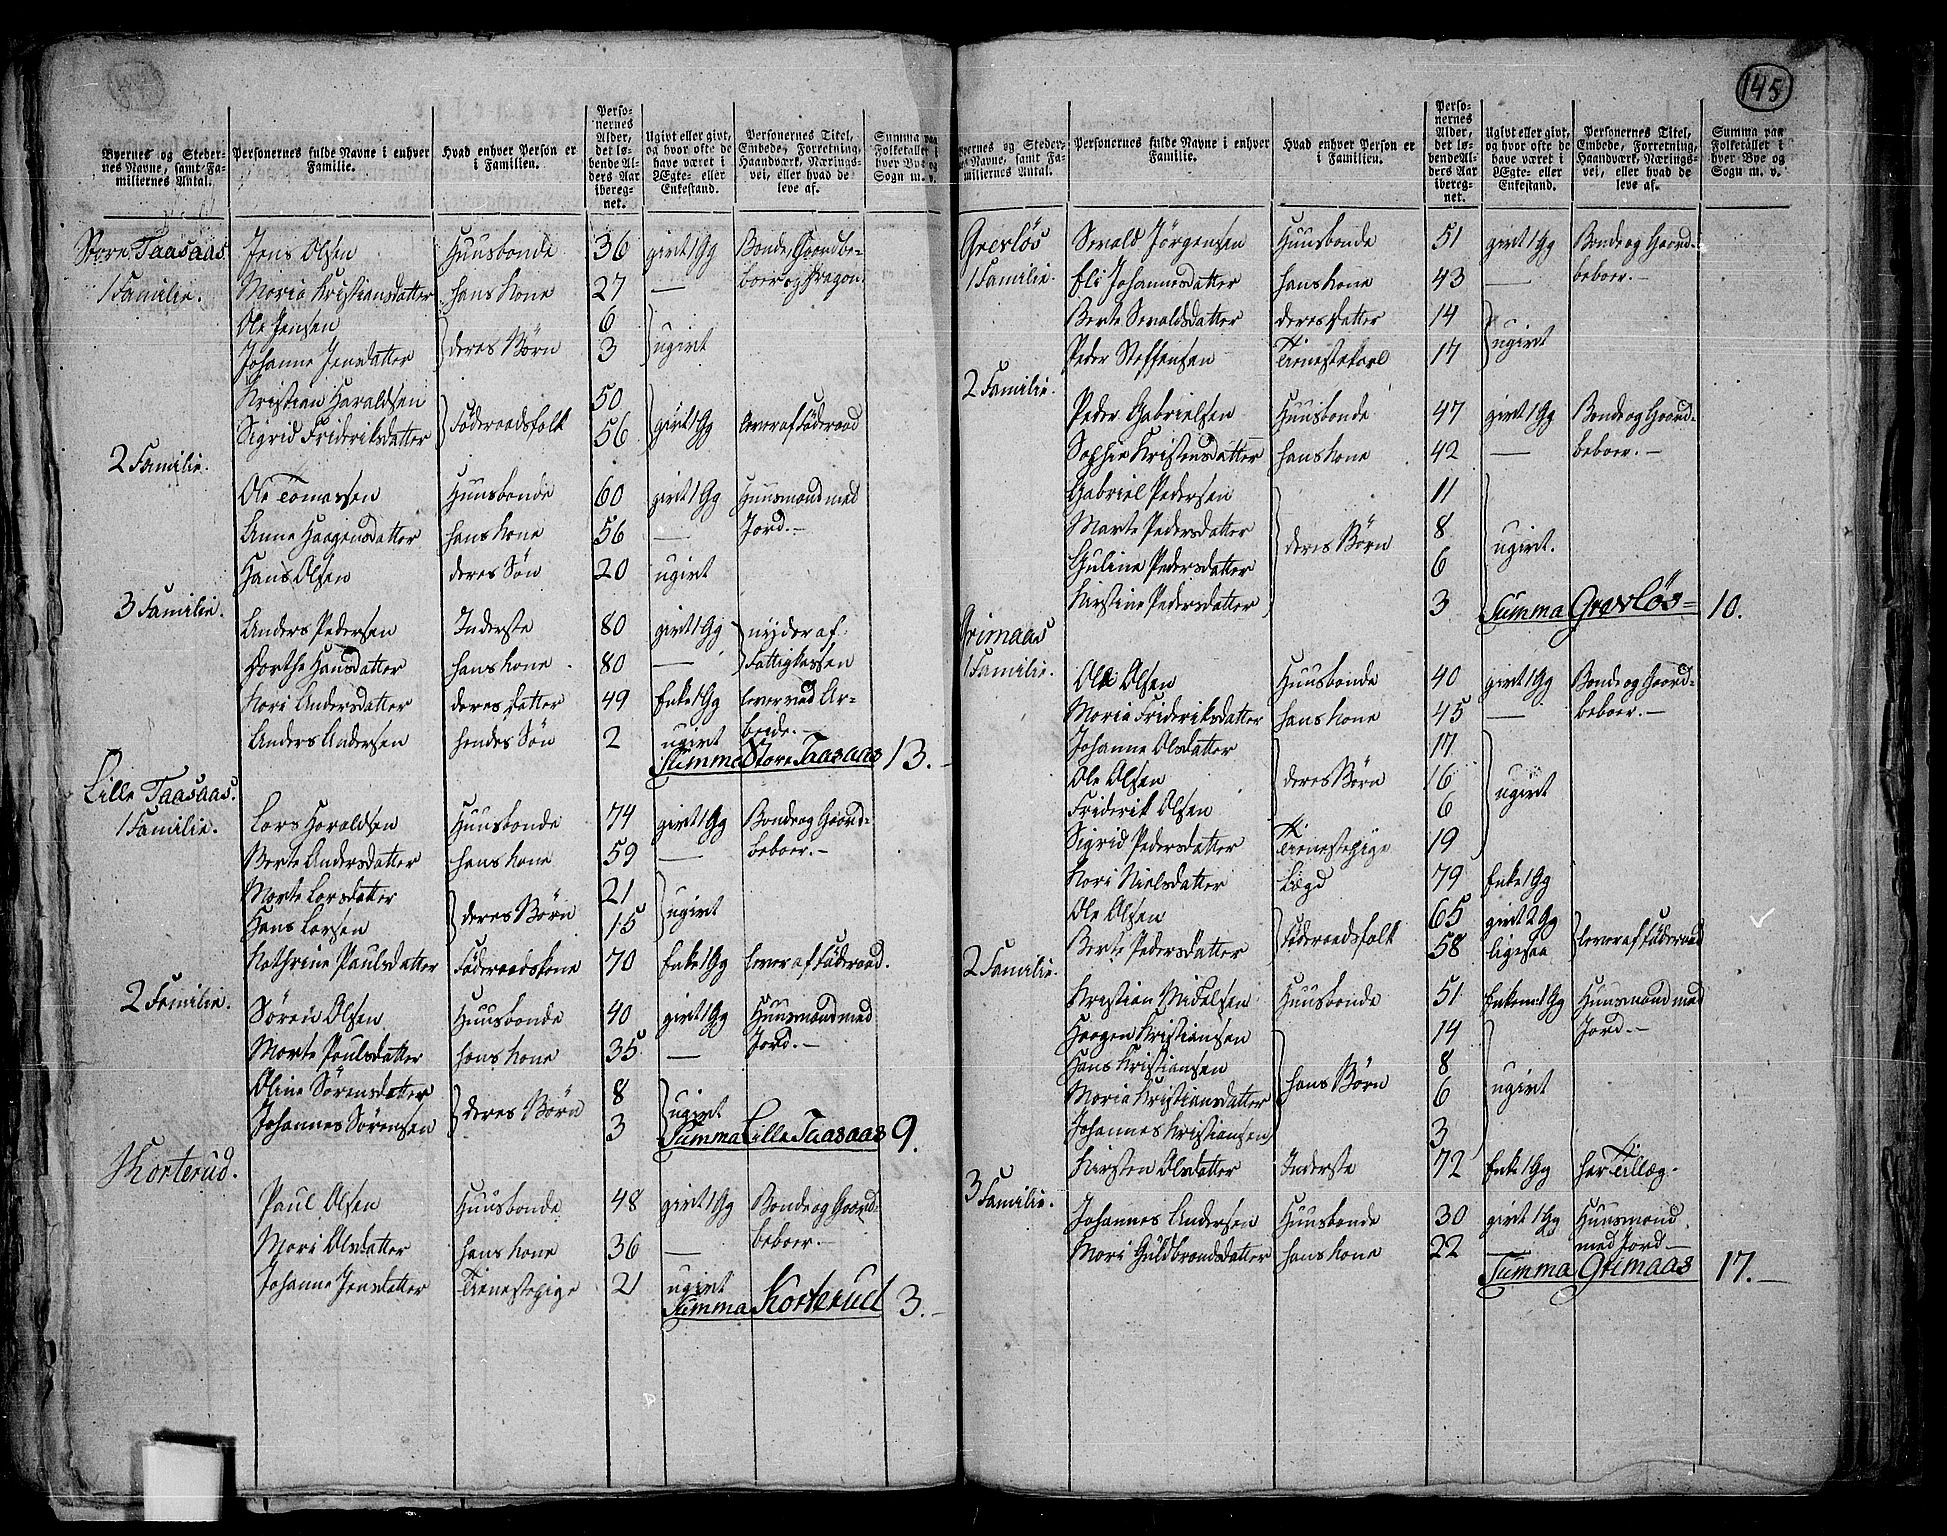 145
Byernes og Steder-
nes Navne, samt Fa-
miliernes Antal.
Personernes fulde Navne i enhver
Familie.
Hvad enhver Person er
i Familien.
Perso-
nernes
Alder,
det lø-
bende Al-
ders Aar
iberegnet.
Ugivt eller givt,
og hvor ofte de
have været i
Ægte- eller
Enkestand.
Personernes Titel,
Embede, Forretning,
Haandværk, Nærings-
vei, eller hvad de
leve af.
Summa paa
Folketallet i
hver Bye og
Sogn m. v.
Store Taasaas Jens Olsen Huusbonde 36 givt 1 Gg Bonde, Gaardbe-
1 Familie. Maria Kristiansdatter hans Kone 27 — boer og Dragon
Ole Jensen 6
Johanne Jensdatter } deres Børn 3 } ugivt
Kristian Haraldsen 50
Sigrid Frideriksdatter } Föderaadsfolk 56 } givt 1 Gg lever af Föderaad
2 Familie.
Ole Tomassen Huusbonde 60 givt 1 Gg Huusmand med
Anne Haagensdatter hans Kone 56 — Jord.—
Hans Olsen deres Søn 20 ugivt
3 Familie.
Anders Pedersen Inderste 80 givt 1 Gg nyder af
Dorthe Hansdatter hans Kone 80 — Fattigkassen
Kari Andersdatter deres datter 49 Enke 1 Gg lever ved Ar-
Anders Andersen hendes Søn 2 ugivt beide.—
Summa Store Taasaas 13.
Lille Taasaas.
1 Familie. Lars Haraldsen Huusbonde 74 givt 1 Gg Bonde og Gaard-
Berte Andersdatter hans Kone 59 — beboer.—
Marte Larsdatter 21
Hans Larsen } deres Børn 15 } ugivt
Kathrine Paulsdatter Föderaadskone 70 Enke 1 Gg lever af Föderaad.
2 Familie. Søren Olsen Huusbonde 40 givt 1 Gg Huusmand med
Marte Paulsdatter hans Kone 35 — Jord.—
Oline Sørensdatter 8
Johannes Sørensen } deres Børn 3 } ugivt
Summa Lille Taasaas 9.
Korterud.
Paul Olsen Huusbonde 48 givt 1 Gg Bonde og Gaard-
Mari Olsdatter hans Kone 36 — beboer.—
Johanne Jensdatter Tienestepige 21 ugivt
Summa Korterud 3.
Byernes og Steder-
nes Navne, samt Fa-
miliernes Antal.
Personernes fulde Navne i enhver
Familie.
Hvad enhver Person er
i Familien.
Perso-
nernes
Alder,
det lø-
bende Al-
ders Aar
iberegnet.
Ugivt eller givt,
og hvor ofte de
have været i
Ægte- eller
Enkestand.
Personernes Titel,
Embede, Forretning,
Haandværk, Nærings-
vei, eller hvad de
leve af.
Summa paa
Folketallet i
hver Bye og
Sogn m. v.
Grevløs Sevald Jörgensen Huusbonde 51 givt 1 Gg Bonde og Gaard-
1 Familie. Eli Johannesdatter hans Kone 43 — beboer.—
Berte Sevaldsdatter deres datter 14
Peder Steffensen Tienestekarl 17 } ugivt
2 Familie.
Peder Gabrielsen Huusbonde 47 givt 1 Gg Bonde og Gaard-
Sophie Kristensdatter hans Kone 42 — beboer.—
Gabriel Pedersen 11
Marte Pedersdatter 8
Guline Pedersdatter } deres Børn 6 } ugivt.
Kirstine Pedersdatter 3 Summa Grevløs 10.
Grimaas
1 Familie. Ole Olsen Huusbonde 40 givt 1 Gg Bonde og Gaard-
Maria Frideriksdatter hans Kone 45 — beboer.—
Johanne Olsdatter 17
Ole Olsen } deres Børn 16 } ugivt
Friderik Olsen 6
Sigrid Pedersdatter Tienestepige 19
Kari Nielsdatter Lægd 79 Enke 1 Gg
Ole Olsen 65 givt 2 Gg
Berte Pedersdatter } Föderaadsfolk 58 ligesaa } lever af Föderaad
2 Familie.
Kristian Mikelsen Huusbonde 51 Enkem: 1 Gg Huusmand med
Haagen Kristiansen 14 Jord.—
Hans Kristiansen 8
Maria Kristiansdatter } hans Børn 6 } ugivt
Johannes Kristiansen 3
Kirsten Olsdatter Inderste 72 Enke 1 Gg har Tillæg.
3 Familie.
Johannes Andersen Huusbonde 30 givt 1 Gg Huusmand
Mari Guldbrandsdatter hans Kone 22 — med Jord—
Summa Grimaas 17.